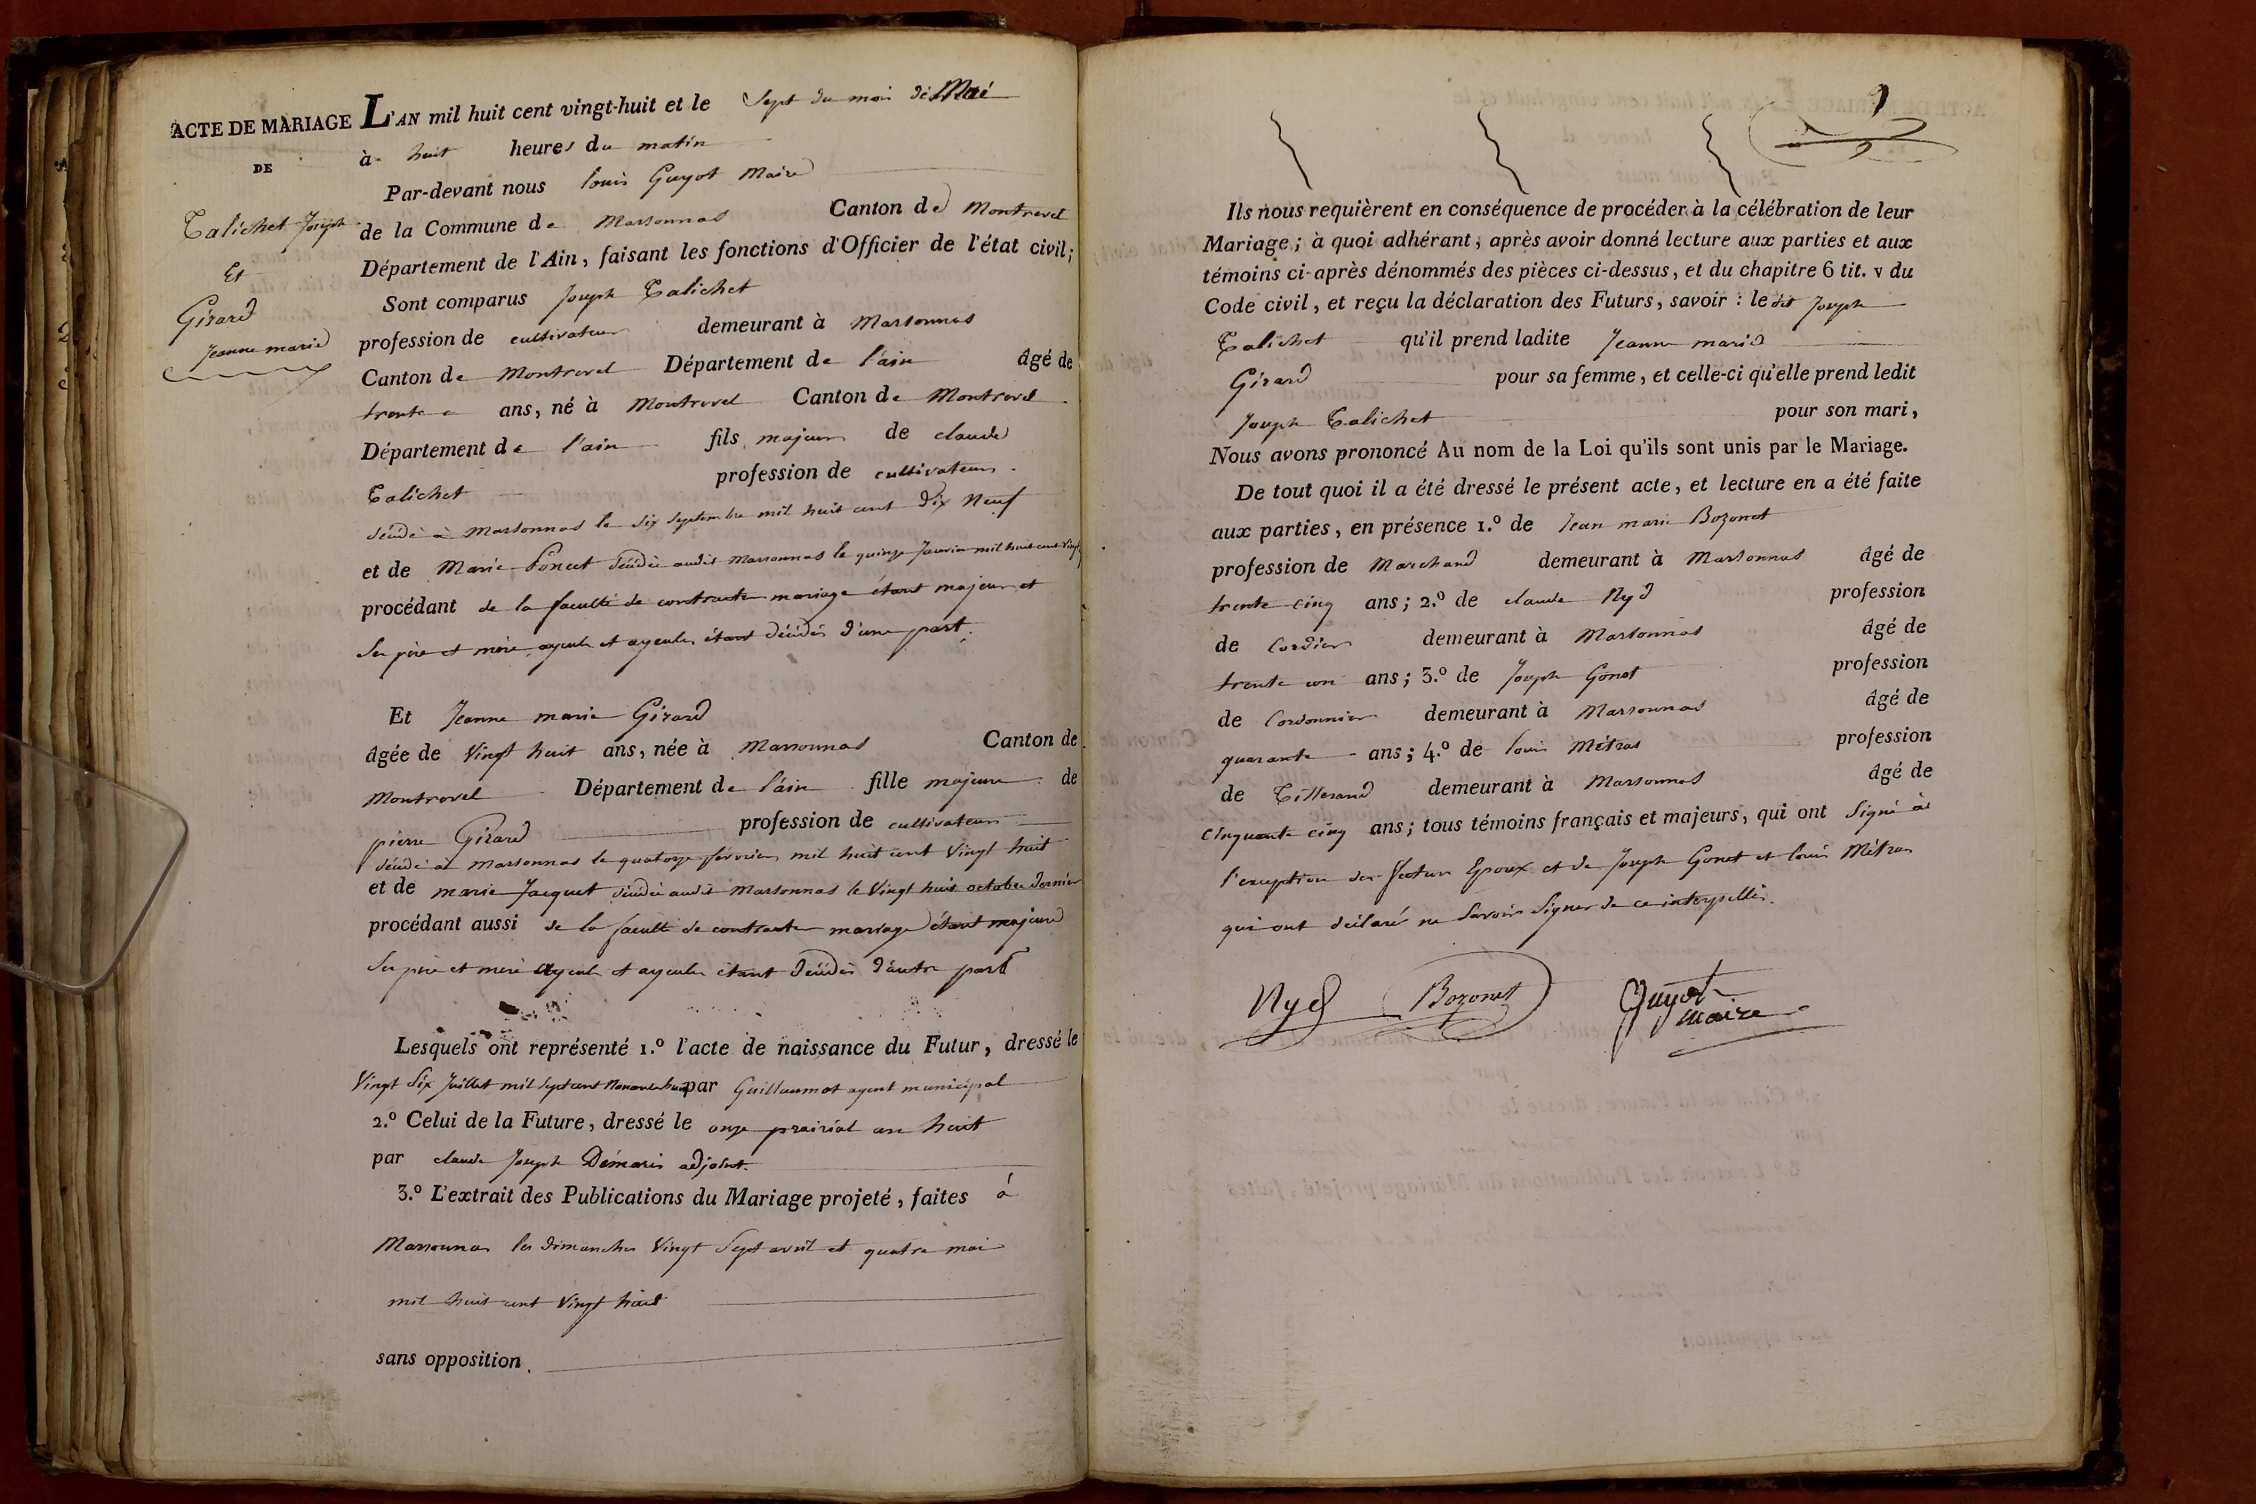 ACTE DE MARIAGE
DE
Talichet Joseph
Et
Girard
Jeanne marie
L'AN mil huit cent vingt-huit et le Sept du moi de Mai
à huit heures du matin
Par-devant nous louis Guyot Maire
de la Commune de Marsonnas Canton de Montrevel
Département de l'Ain, faisant les fonctions d'Officier de l'état civil;
Sont comparus Joseph Talichet
profession de cultivateur demeurant à Marsonnas
Canton de Montrevel Département de l'ain âgé de
trente ans, né à Montrevel Canton de Montrevel
Département de l'ain fils majeur de claude
Talichet profession de cultivateur
décédé à Marsonnas le six septembre mil huit cent Dix Neuf
et de Marie Poncet décédée audit Marsonnas le quinze Janvier mil huit cent vingt
procédant de la faculté de contracter mariage étant majeur et
Ses père et mère ayeuls et ayeules étant décédés d'une part.
Et Jeanne marie Girard
âgée de Vingt huit ans, née à Marsonnas Canton de
Montrevel Département de l'ain fille majeure de
pierre Girard profession de cultivateur
décédé à Marsonnas le quatorze février mil huit cent Vingt huit
et de marie Jacquet décédée audit Marsonnas le Vingt huit octobre dernier
procédant aussi de la faculté de contracter mariage étant majeure
Ses père et mère ayeuls et ayeules étant décédés d'autre part
Lesquels ont représenté 1.º l'acte de naissance du Futur, dressé le
Vingt Six Juillet mil sept cent Nonante huit par Guillaumot agent municipal
2.º Celui de la Future, dressé le onze prairial an huit
par claude Joseph Démaris adjoint.
3.º L'extrait des Publications du Mariage projeté, faites à
Marsonnas les dimanches Vingt Sept avril et quatre mai
mil huit cent Vingt huit
sans opposition.
Ils nous requièrent en conséquence de procéder à la célébration de leur
Mariage; à quoi adhérant, après avoir donné lecture aux parties et aux
témoins ci-après dénommés des pièces ci-dessus, et du chapitre 6 tit. v du
Code civil, et reçu la déclaration des Futurs, savoir : ledit Joseph
Talichet qu'il prend ladite Jeanne marie
Girard pour sa femme, et celle-ci qu'elle prend ledit
Joseph Talichet pour son mari,
Nous avons prononcé Au nom de la Loi qu'ils sont unis par le Mariage.
De tout quoi il a été dressé le présent acte, et lecture en a été faite
aux parties, en présence 1.º de Jean marie Bozonet
profession de Marchand demeurant à Marsonnas âgé de
trente cinq ans; 2.º de claude Nyd profession
de Cordier demeurant à Marsonnas âgé de
trente un ans; 3.º de Joseph Gonet profession
de Cordonnier demeurant à Marsonnas âgé de
quarante ans; 4.º de louis Métras profession
de Tisserand demeurant à Marsonnas âgé de
Cinquante cinq ans; tous témoins français et majeurs, qui ont Signé à
l'exception des futurs Epoux et de Joseph Gonet et louis Métras
qui ont déclaré ne Savoir Signer de ce interpellés.
Nyd Bozonet Guyot
maire